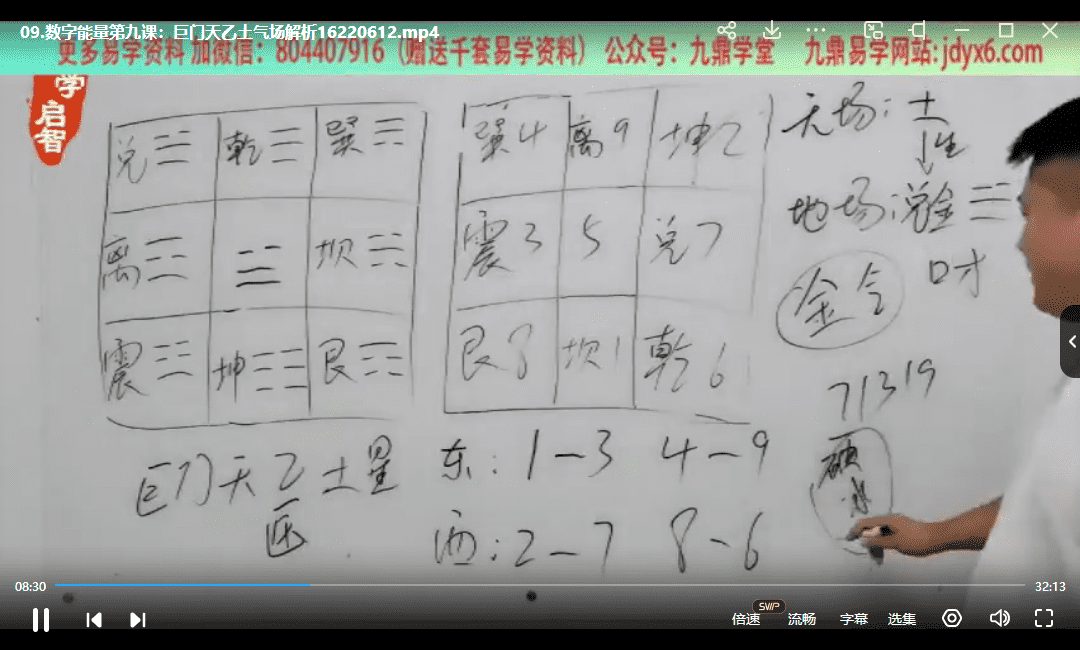 09.数字能量第九课：巨门天乙土气场解析16220612.mp4
更多易学资料 加微信：804407916（赠送千套易学资料） 公众号：九鼎学堂 九鼎易学网站:jdyx6.com
学
启
智
兑 ☱ 乾 ☰ 巽 ☴
离 坎
震 坤 艮
巽4 离9 坤2
震3 5 兑7
艮8 坎1 乾6
天场：土
↓生
地场：兑金
口才
金气
71319
巨门天乙土星
医
东：1－3 4－9
西：2－7 8－6
08:30 32:13
SVIP
倍速 流畅 字幕 选集